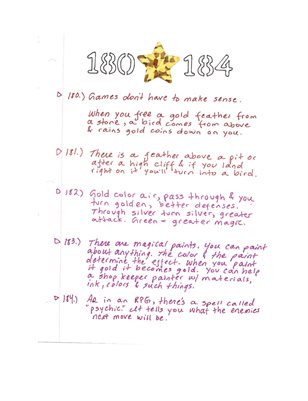 180 184
180.) Games don't have to make sense.
When you free a gold feather from
a stone, a bird comes from above
& rains gold coins down on you.
181.) There is a feather above a pit or
after a high cliff & if you land
right on it you'll turn into a bird.
182.) Gold color air, pass through & you
turn golden, better defenses.
Through silver turn silver, greater
attack. Green = greater magic.
183.) There are magical paints. You can paint
about anything. The color & the paint
determine the effect. When you paint
it gold it becomes gold. You can help
a shop keeper painter w/ materials,
ink, colors & such things.
184.) As in an RPG, there's a spell called
"psychic." It tells you what the enemies
next move will be.